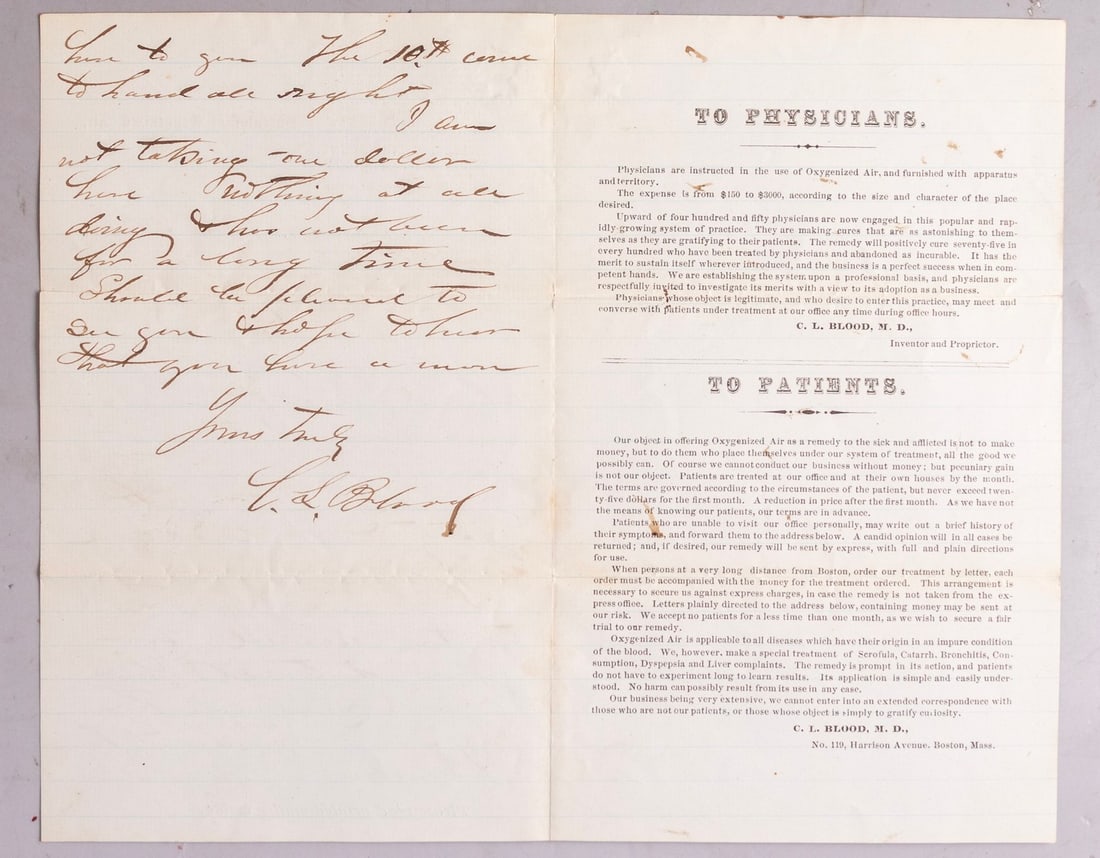 here to you The 10th come
to hand all right
I am
not taking one dollar
here nothing at all
doing & has not been
for a long time
Should be pleased to
see you & hope to hear
that you have a more
Yours Truly
C. L. Blood
TO PHYSICIANS.
Physicians are instructed in the use of Oxygenized Air, and furnished with apparatus
and territory.
The expense is from $150 to $3000, according to the size and character of the place
desired.
Upward of four hundred and fifty physicians are now engaged in this popular and rap-
idly growing system of practice. They are making cures that are as astonishing to them-
selves as they are gratifying to their patients. The remedy will positively cure seventy-five in
every hundred who have been treated by physicians and abandoned as incurable. It has the
merit to sustain itself wherever introduced, and the business is a perfect success when in com-
petent hands. We are establishing the system upon a professional basis, and physicians are
respectfully invited to investigate its merits with a view to its adoption as a business.
Physicians whose object is legitimate, and who desire to enter this practice, may meet and
converse with patients under treatment at our office any time during office hours.
C. L. BLOOD, M. D.,
Inventor and Proprietor.
TO PATIENTS.
Our object in offering Oxygenized Air as a remedy to the sick and afflicted is not to make
money, but to do them who place themselves under our system of treatment, all the good we
possibly can. Of course we cannot conduct our business without money; but pecuniary gain
is not our object. Patients are treated at our office and at their own houses by the month.
The terms are governed according to the circumstances of the patient, but never exceed twen-
ty-five dollars for the first month. A reduction in price after the first month. As we have not
the means of knowing our patients, our terms are in advance.
Patients who are unable to visit our office personally, may write out a brief history of
their symptoms, and forward them to the address below. A candid opinion will in all cases be
returned; and, if desired, our remedy will be sent by express, with full and plain directions
for use.
When persons at a very long distance from Boston, order our treatment by letter, each
order must be accompanied with the money for the treatment ordered. This arrangement is
necessary to secure us against express charges, in case the remedy is not taken from the ex-
press office. Letters plainly directed to the address below, containing money may be sent at
our risk. We accept no patients for a less time than one month, as we wish to secure a fair
trial to our remedy.
Oxygenized Air is applicable to all diseases which have their origin in an impure condition
of the blood. We, however, make a special treatment of Scrofula, Catarrh, Bronchitis, Con-
sumption, Dyspepsia and Liver complaints. The remedy is prompt in its action, and patients
do not have to experiment long to learn results. Its application is simple and easily under-
stood. No harm can possibly result from its use in any case.
Our business being very extensive, we cannot enter into an extended correspondence with
those who are not our patients, or those whose object is simply to gratify curiosity.
C. L. BLOOD, M. D.,
No. 119, Harrison Avenue, Boston, Mass.